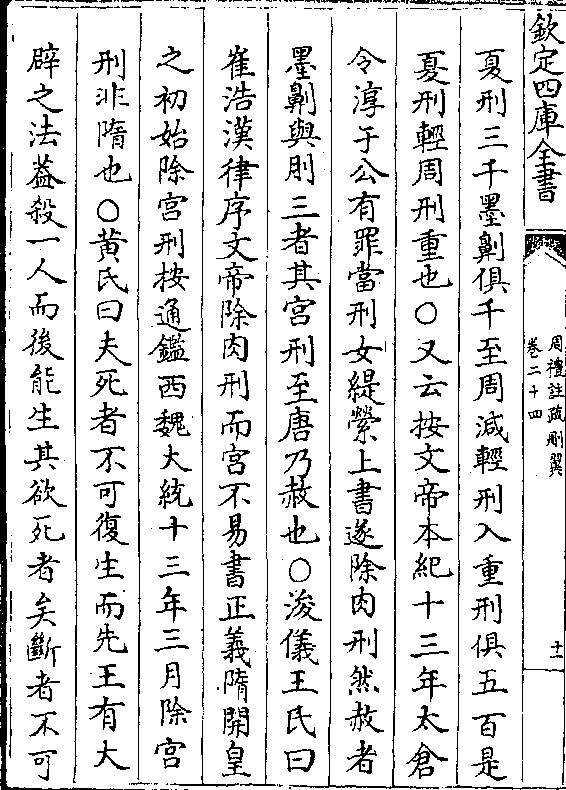 欽定四庫全書
周禮註疏刪翼
卷二十四
十一
夏刑三千墨劓俱千至周減輕刑入重刑俱五百是
夏刑輕周刑重也○又云按文帝本紀十三年太倉
令淳于公有罪當刑女緹縈上書遂除肉刑然赦者
墨劓與刖三者其宮刑至唐乃赦也○浚儀王氏曰
崔浩漢律序文帝除肉刑而宮不易書正義隋開皇
之初始除宮刑按通鑑西魏大統十三年三月除宮
刑非隋也○黄氏曰夫死者不可復生而先王有大
辟之法葢殺一人而後能生其欲死者矣斷者不可